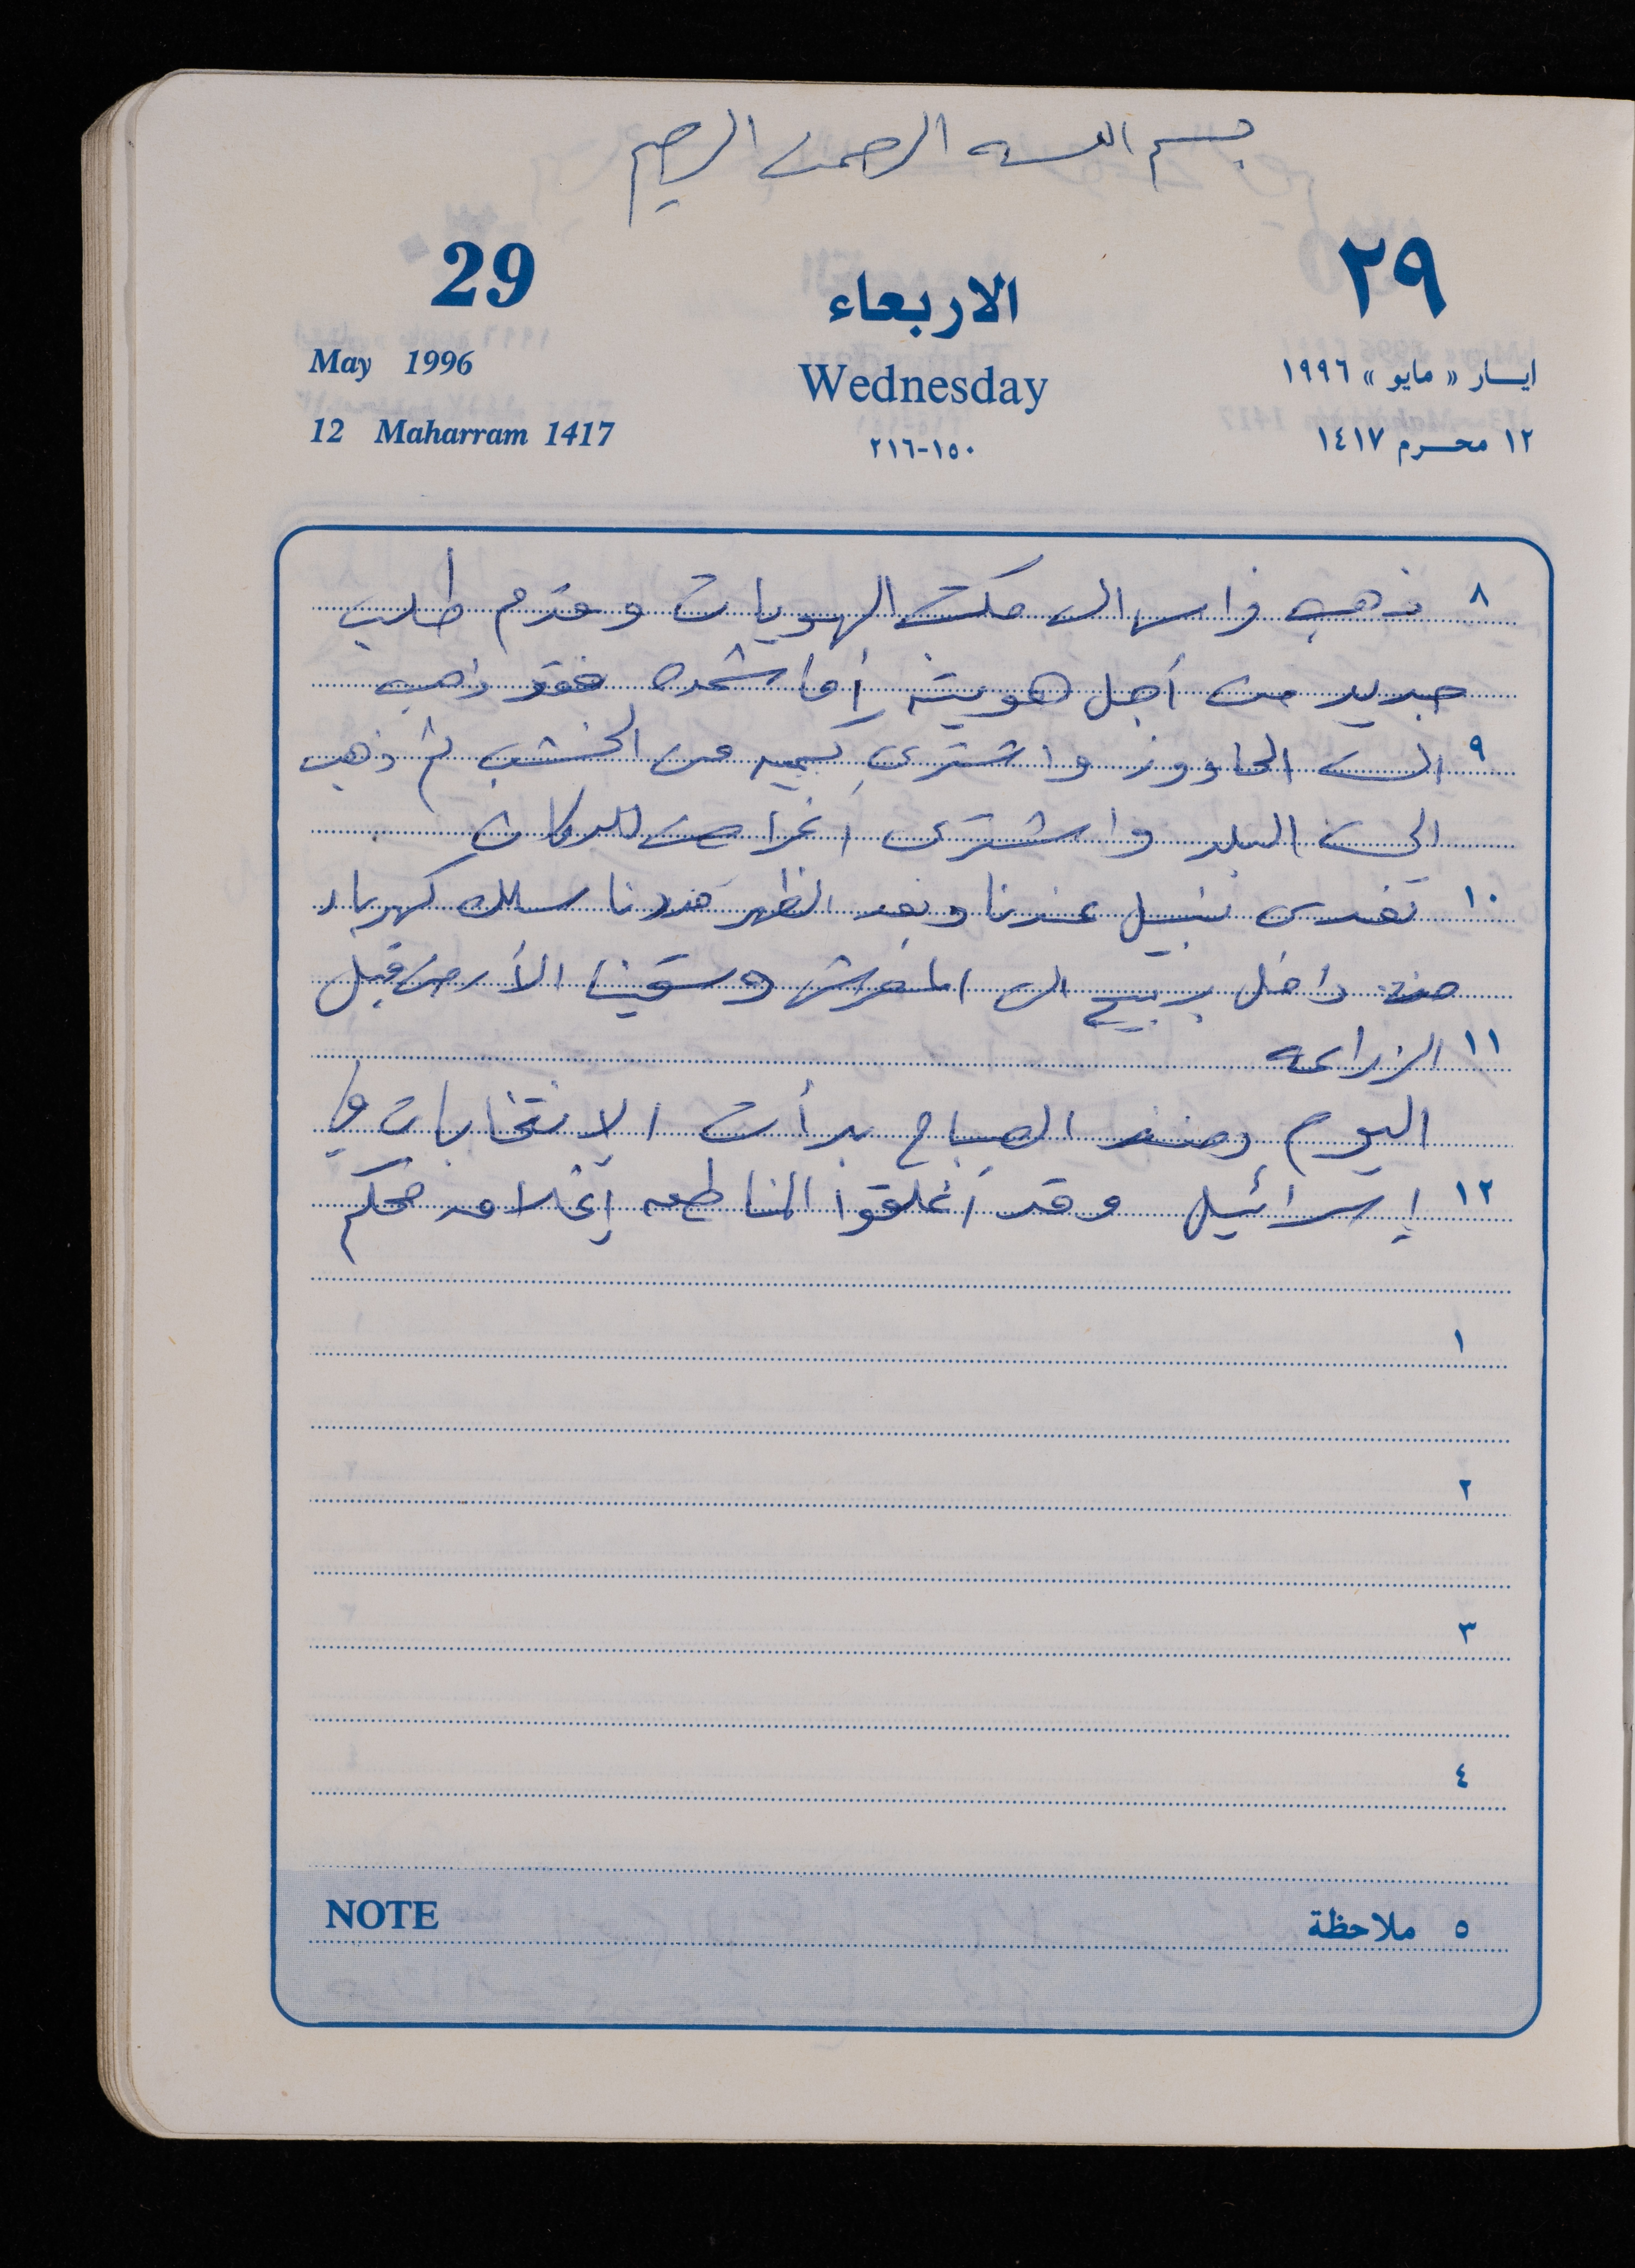 بسم الله الرحمن الرحيم
29 الاربعاء ٢٩
May 1996 Wednesday ايـار « مايو » ١٩٩٦
12 Maharram 1417 ٢١٦-١٥٠ ١٢ محـرم ١٤١٧
٨ ذهب فراس الى مكتب الهويات وقدم طلب
جديد من أجل هويته أما شحده فقد ذهب
٩ الى الحاووز واشترى كميه من الخشب ثم ذهب
الى البلد واشترى أغراض للدكان
١٠ تغدى نبيل عندنا وبعد الظهر مددنا سلك كهرباء
من داخل الى وسقينا الأرض قبل
١١ الزراعه
اليوم ومنذ الصباح بدأت الإنتخابات في
١٢ إسرائيل وقد أغلقوا المناطق إغلاق محكم
١
٢
٣
٤
NOTE ٥ ملاحظة